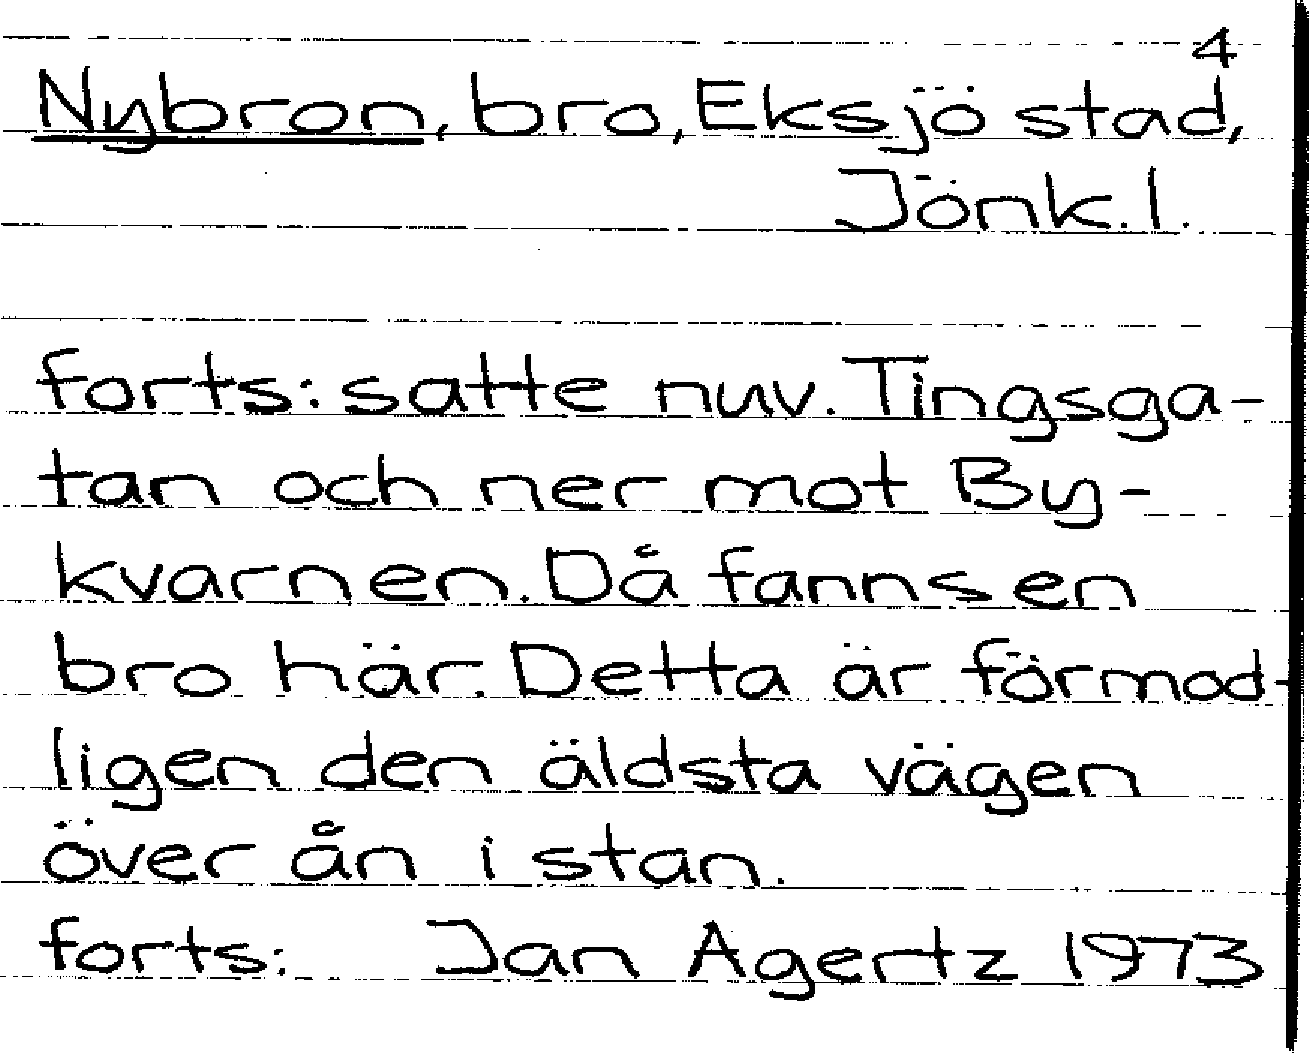 4
Nybron, bro, Eksjö stad,
Jönk. l.
forts: satte nuv. Tingsga-
tan och ner mot By-
kvarnen. Då fanns en
bro här. Detta är förmod-
ligen den äldsta vägen
över ån i stan.
forts: Jan Agertz 1973